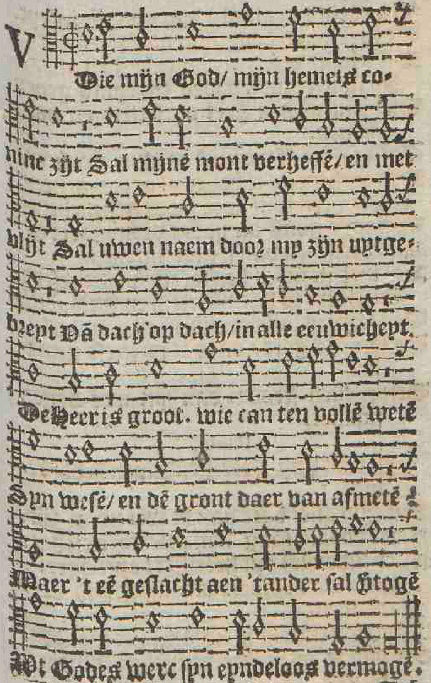 V Die mijn God/ mijn hemels co-
ninc zijt Sal mijnē mont verheffē/ en met
vlijt Sal uwen naem door mp zijn uptge-
brept Vā dach op dach/ in alle eeuwichept.
De Heer is groot. wie can ten vollē wetē
Syn wesē/ en dē gront daer van afmetē
Maer 't eē geslacht aen 'tander sal htogē
Wt Godes werc syn eyndeloos vermogē.